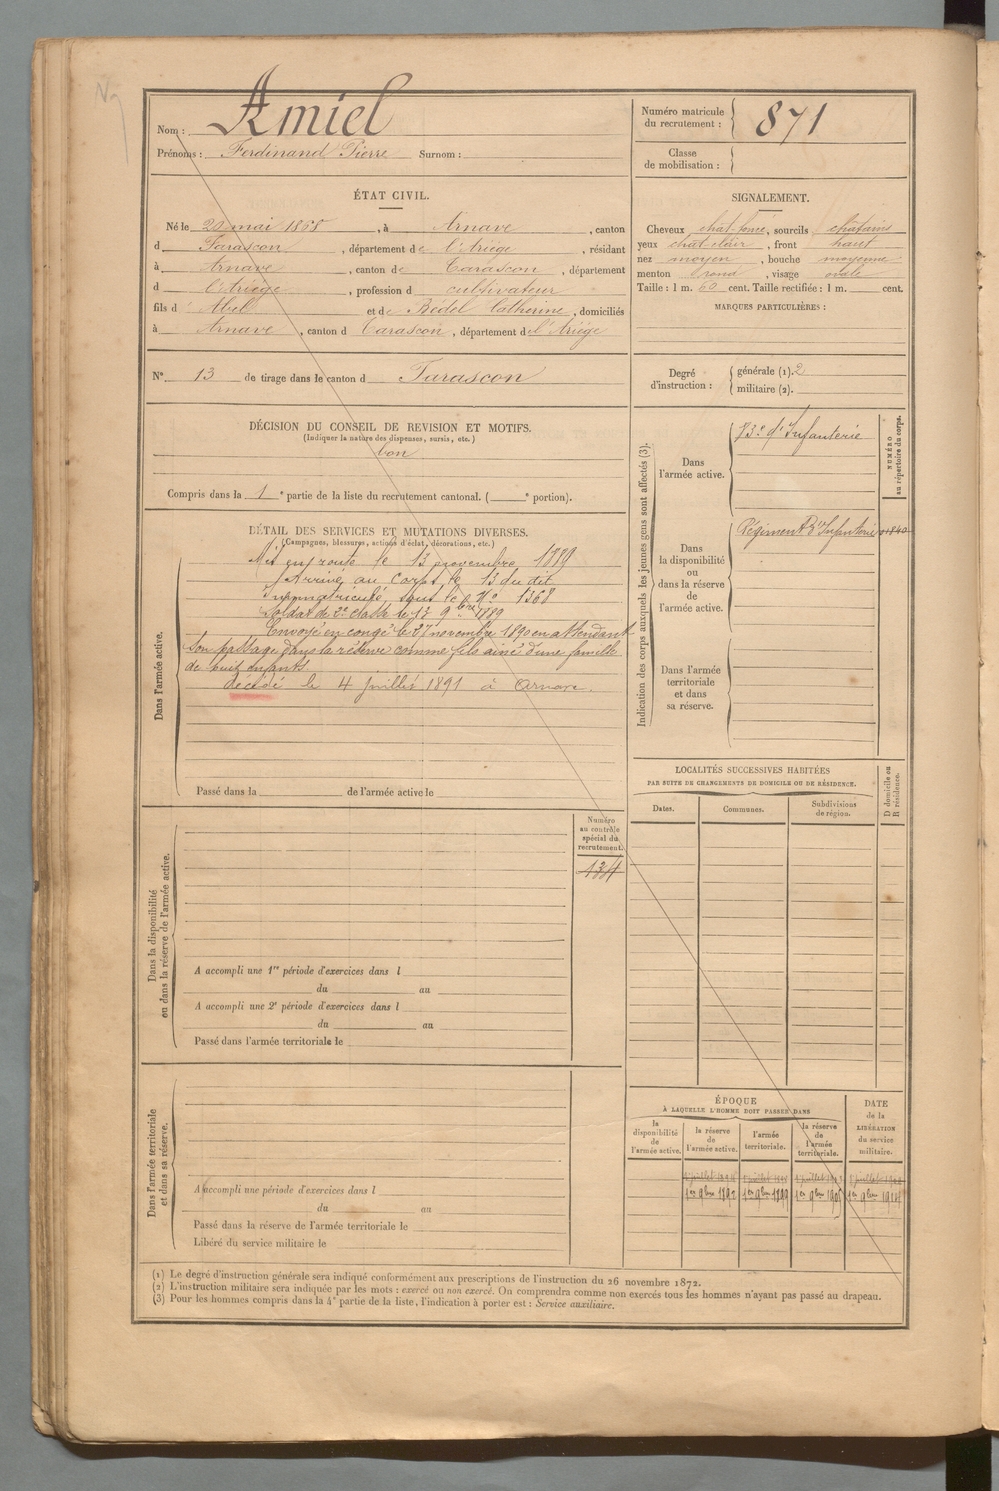 Nom : Amiel
Prénoms : Ferdinand Pierre Surnom :
Numéro matricule
du recrutement : 871
Classe
de mobilisation :
ÉTAT CIVIL.
Né le 20 mai 1868, à Arnave, canton
d Tarascon, département de l'Ariège, résidant
à Arnave, canton de Tarascon, département
d l'Ariège, profession d cultivateur
fils d Abel et de Bédel Catherine, domiciliés
à Arnave, canton d Tarascon, département de l'Ariège
SIGNALEMENT.
Cheveux chat. foncé, sourcils châtains
yeux chat. clair, front haut
nez moyen, bouche moyenne
menton rond, visage ovale
Taille : 1 m. 60 cent. Taille rectifiée : 1 m. cent.
MARQUES PARTICULIÈRES :
N° 13 de tirage dans le canton d Tarascon
Degré
d'instruction :
générale (1). 2
militaire (2).
DÉCISION DU CONSEIL DE REVISION ET MOTIFS.
(Indiquer la nature des dispenses, sursis, etc.)
bon
Compris dans la 1e partie de la liste du recrutement cantonal. ( e portion).
DÉTAIL DES SERVICES ET MUTATIONS DIVERSES.
(Campagnes, blessures, actions d'éclat, décorations, etc.)
Dans l'armée active.
Mis en route le 13 novembre 1889
Arrivé au corps le 13 du dit
Immatriculé sous le N° 1368
Soldat de 2e classe le 13 9bre 1889
Envoyé en congé le 27 novembre 1890 en attendant
son passage dans la réserve comme fils ainé d'une famille
de huit enfants
décédé le 4 juillet 1891 à Arnave
Passé dans la de l'armée active le
Indication des corps auxquels les jeunes gens sont affectés (3).
NUMÉRO
au répertoire du corps.
Dans
l'armée active.
d'Infanterie
Dans
la disponibilité
ou
dans la réserve
de
l'armée active.
Régiment d'Infanterie
Dans l'armée
territoriale
et dans
sa réserve.
LOCALITÉS SUCCESSIVES HABITÉES
PAR SUITE DE CHANGEMENTS DE DOMICILE OU DE RÉSIDENCE.
Dates.
Communes.
Subdivisions
de région.
D domicile ou
R résidence.
Dans la disponibilité
ou dans la réserve de l'armée active.
Numéro
au contrôle
spécial du
recrutement.
A accompli une 1re période d'exercices dans l
du au
A accompli une 2e période d'exercices dans l
du au
Passé dans l'armée territoriale le
Dans l'armée territoriale
et dans sa réserve.
A accompli une période d'exercices dans l
du au
Passé dans la réserve de l'armée territoriale le
Libéré du service militaire le
ÉPOQUE
À LAQUELLE L'HOMME DOIT PASSER DANS
la
disponibilité
de
l'armée active.
la réserve
de
l'armée active.
l'armée
territoriale.
la réserve
de
l'armée
territoriale.
DATE
de la
LIBÉRATION
du service
militaire.
1er 9bre 1892 1er 9bre 1899
(1) Le degré d'instruction générale sera indiqué conformément aux prescriptions de l'instruction du 26 novembre 1872.
(2) L'instruction militaire sera indiquée par les mots : exercé ou non exercé. On comprendra comme non exercés tous les hommes n'ayant pas passé au drapeau.
(3) Pour les hommes compris dans la 4e partie de la liste, l'indication à porter est : Service auxiliaire.